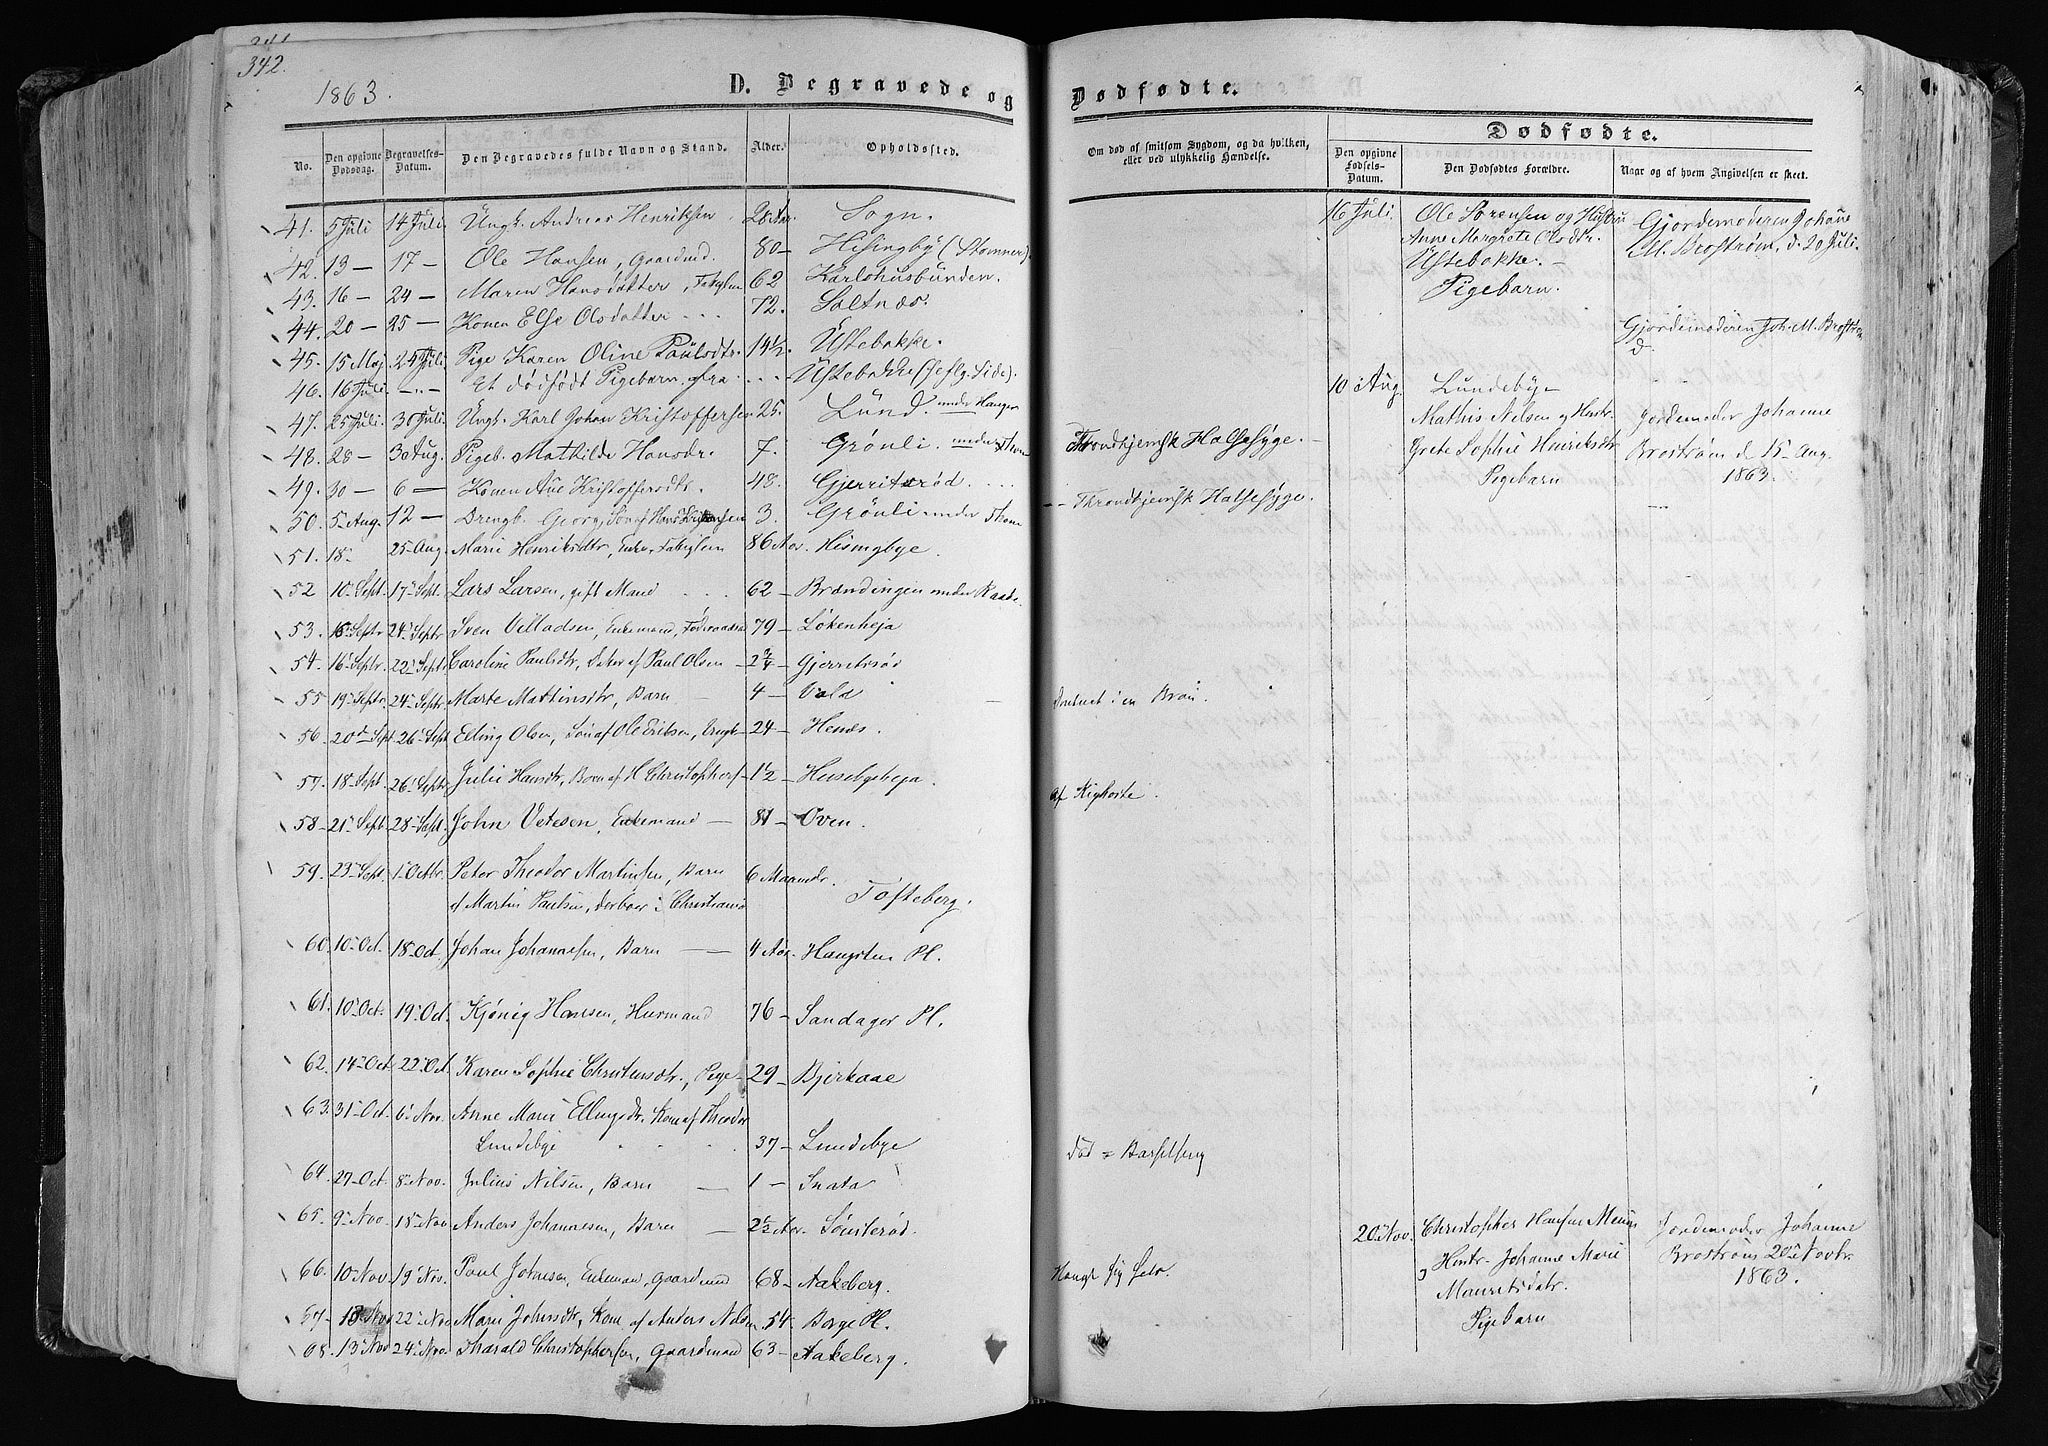 341
342.
1863.
D. Begravede og
No.
Den opgivne Dødsdag.
Begravelses-Datum.
Den Begravedes fulde Navn og Stand.
Alder.
Opholdssted.
41. 5 Juli 14 Juli Ungk. Andreas Henriksen 28 Aar Sogn.
42. 13 — 17 — Ole Hansen, Gaardmd. 80 — Hisingby (Stomner).
43. 16 — 24 — Maren Hansdatter, Fatiglem 62 Karlshusbunden.
44. 20 — 25 — Konen Else Olsdatter - - - 72. Saltnæs.
45. 15 Maj 24 Juli. Pige Karen Oline Paulsdtr. 14½. Ustebakke.
46. 16 Juli. -"- Et dødfødt Pigebarn fra - - - Ustebakke (se flg. Side).
47. 25 Juli. 30 Juli. Ungk. Karl Johan Kristoffersen 25. Lund. under Hauger
48. 28 — 3 Aug. Pigeb. Mathilde Hansdr. 7. Grönli. under
49. 30 — 6 — Konen Ane Kristoffersdtr. 48. Gjerritsrød. . . .
50. 5 Aug. 12 — Drengb. Georg, Søn af Hans Kristensen 3. Grönli under
51. 18. 25 Aug. Marie Henriksdtr, Enke, Fatiglem 86 Aar. Hisingbye.
52 10 Sept. 17 Sept. Lars Larsen, gift Mand . . . 62 — Brændingen under Raade.
53. 16 Septr 24 Septr Sven Villadsen, Enkemand, Føderaadsmd 79 — Løkenheja
54. 16 Septr. 22 Septr. Caroline Paulsdtr, Datter af Paul Olsen — 2¾ — Gjerretsrød
55 19 Septr. 24 Septr. Marte Martinsdtr, Barn — 4 — Vold
56 20 Sept 26 Sept Elling Olsen, Søn af Ole Eriksen, Ungk — 24 — Henæs.
57. 18 Sept. 26 Sept. Julie Hansdtr, Barn af H Christophers — 1½ — Husebyheja.
58 — 21 Sept. 28 Sept. John Vetesen, Enkemand — 81 — Oven.
59. 23 Sept. 1 Octbr. Peter Theodor Martinsen, Barn 6 Maaneder.
af Martin Paulsen, derboer i Christiania Tofteberg.
60. 10 Oct. 18 Oct. Johan Johannesen, Barn — 4 Aar. Haugsten Pl.
61. 10 Oct. 19 Oct. Kjønig Hansen, Huusmand 76 — Sandager Pl.
62. 14 Oct 22 Oct. Karen Sophie Christensdtr., Pige — 29 — Bjerkaae
63. 31 Oct. 6 Nov. Anne Marie Ellingsdr. Kone af Theodor
Lundebye 37 — Lundebye
64. 27 Oct 8 Nov. Julius Nilsen, Barn — 1 — Snata
65. 9 Nov. 18 Nov. Anders Johannesen, Barn — Aar. Sønsterød.
66. 10 Nov. 19 Nov. Paul Johnsen, Enkemand, Gaardmand 68 — Aakeberg.
67. 22 Nov Marie Johnsdtr, Kone af Anders Nilsen 54. Borge Pl.
68. 13 Nov 24 Nov. Tharald Christophersen, Gaardmand 63 — Aakeberg.
Dødfødte.
Om død af smitsom Sygdom, og da hvilken, eller ved ulykkelig Hændelse.
Dødfødte.
Den opgivne Fødsels-Datum.
Den Dødfødtes Forældre.
Naar og af hvem Angivelsen er skeet.
16 Juli. Ole Sørensen og Hustru Gjordemoderen Johane
Anne Margrete Olsdtr. M. Brostrøm, d. 20 Juli.
Ustebakke. —
Pigebarn.
Gjordemoderen Joh. M. Brostrøm
d.
10 Aug. Lundebye
Mathis Nilsen og Hustr. Jordemoder Johanne
Throndhjemsk Halssyge. — Grete Sophie Henriksdtr Brostrøm d. 15 Aug.
Pigebarn 1863.
-- Throndhjemsk Halssyge. —
Druknet i en Brøn.
af Kighoste.
død i Barselseng
20 Nov. Christopher Hansen Jordemoder Johanne
og Hustr. Johanne Marie Brostrøm 20 Novbr.
Hængt sig selv. Mauritsdatr. 1863.
Pigebarn